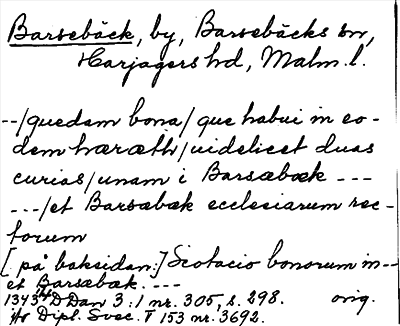 Barsebäck, by, Barsebäcks sn,
Harjagers hd, Malm. l.
--/quedam bona/que habui in eo-
dem hæræth/uidelicet duas
curias/unam i Barsæbæk ---
---/et Barsæbæk ecclesiarum rec-
torum
[på baksidan:] Scotacio bonorum in --
et Barsæbæk. ---
1343 D Dan 3:1 nr. 305, s. 298. orig.
Dipl. Svec. V 153 nr. 3692.